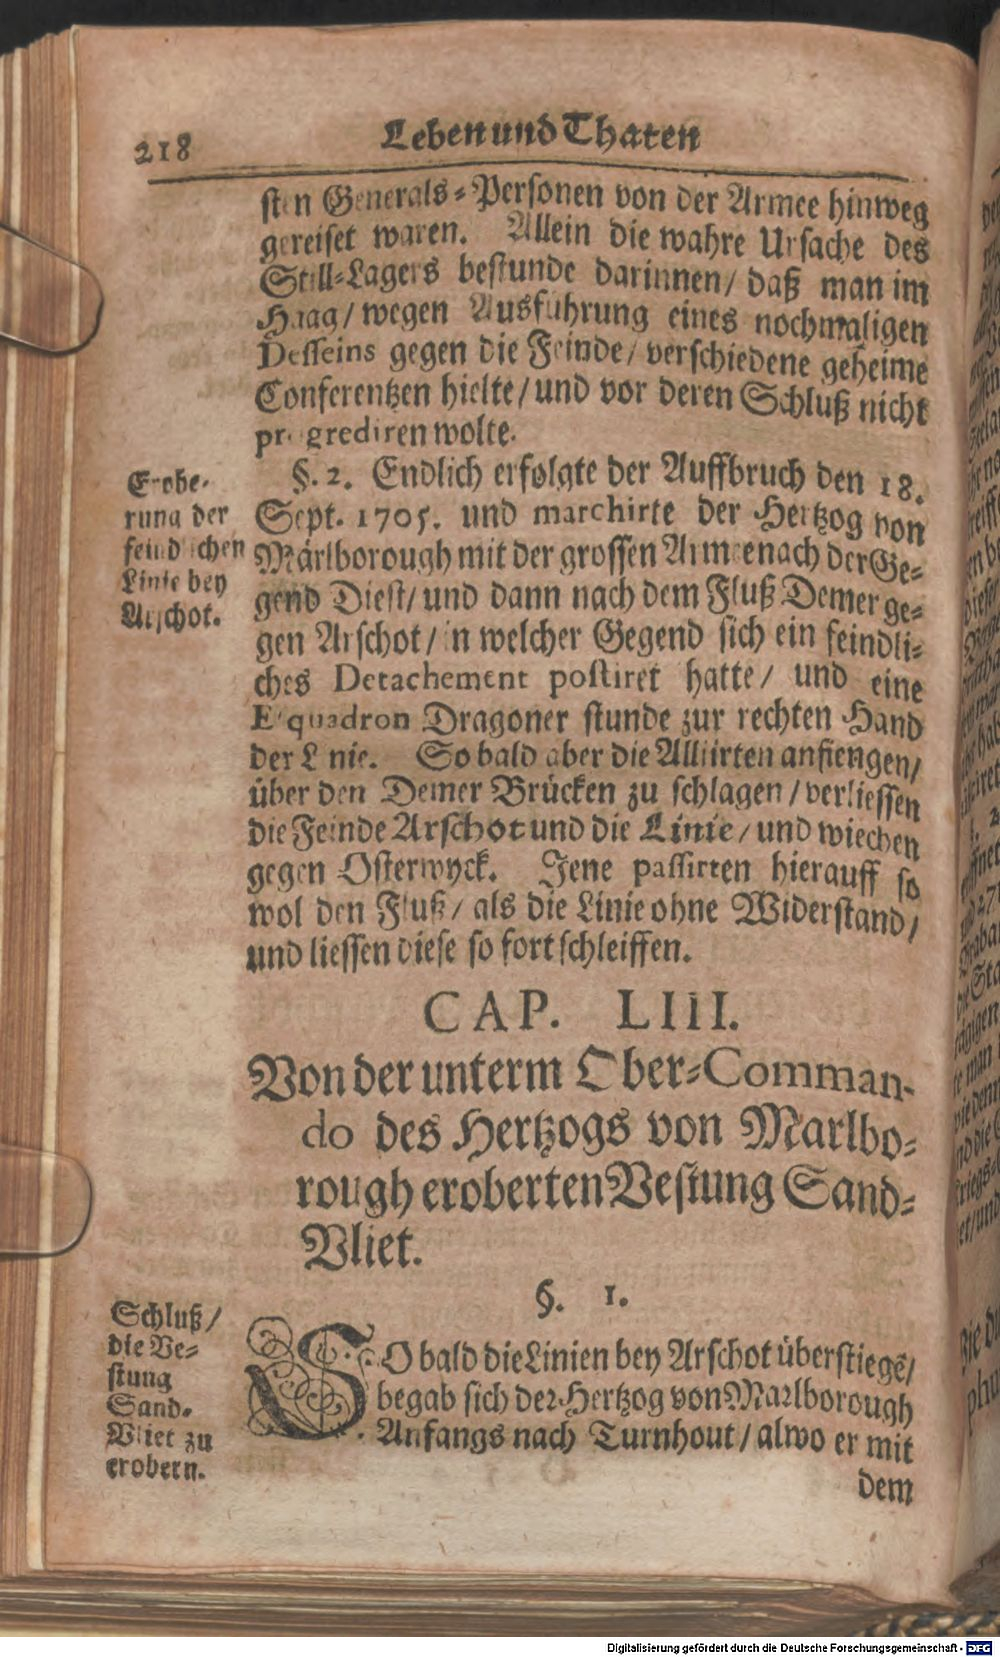 218
Leben und Thaten
sten Generals-Personen von der Armee hinweg
gereiset waren. Allein die wahre Ursache des
Still-Lagers bestunde darinnen/ daß man im
Haag/ wegen Ausführung eines nochmaligen
Desseins gegen die Feinde/ verschiedene geheime
Conferentzen hielte/ und vor deren Schluß nicht
progrediren wolte.
Erobe-
rung der
feindlichen
Linie bey
Arschot.
§. 2. Endlich erfolgte der Auffbruch den 18.
Sept. 1705. und marchirte der Hertzog von
Marlborough mit der grossen Armee nach der Ge-
gend Diest/ und dann nach dem Fluß Demer ge-
gen Arschot/ in welcher Gegend sich ein feindli-
ches Detachement postiret hatte/ und eine
Esquadron Dragoner stunde zur rechten Hand
der Linie. So bald aber die Alliirten anfiengen/
über den Demer Brücken zu schlagen/ verliessen
die Feinde Arschot und die Linie/ und wiechen
gegen Osterwyck. Jene passirten hierauff so
wol den Fluß/ als die Linie ohne Widerstand/
und liessen diese so fort schleiffen.
CAP. LIII.
Von der unterm Ober-Comman-
do des Hertzogs von Marlbo-
rough eroberten Vestung Sand-
Vliet.
§. 1.
Schluß/
die Ve-
stung
Sand-
Vliet zu
erobern.
SO bald die Linien bey Arschot überstiegē/
begab sich der Hertzog von Marlborough
Anfangs nach Turnhout/ alwo er mit
dem
Digitalisierung gefördert durch die Deutsche Forschungsgemeinschaft - DFG